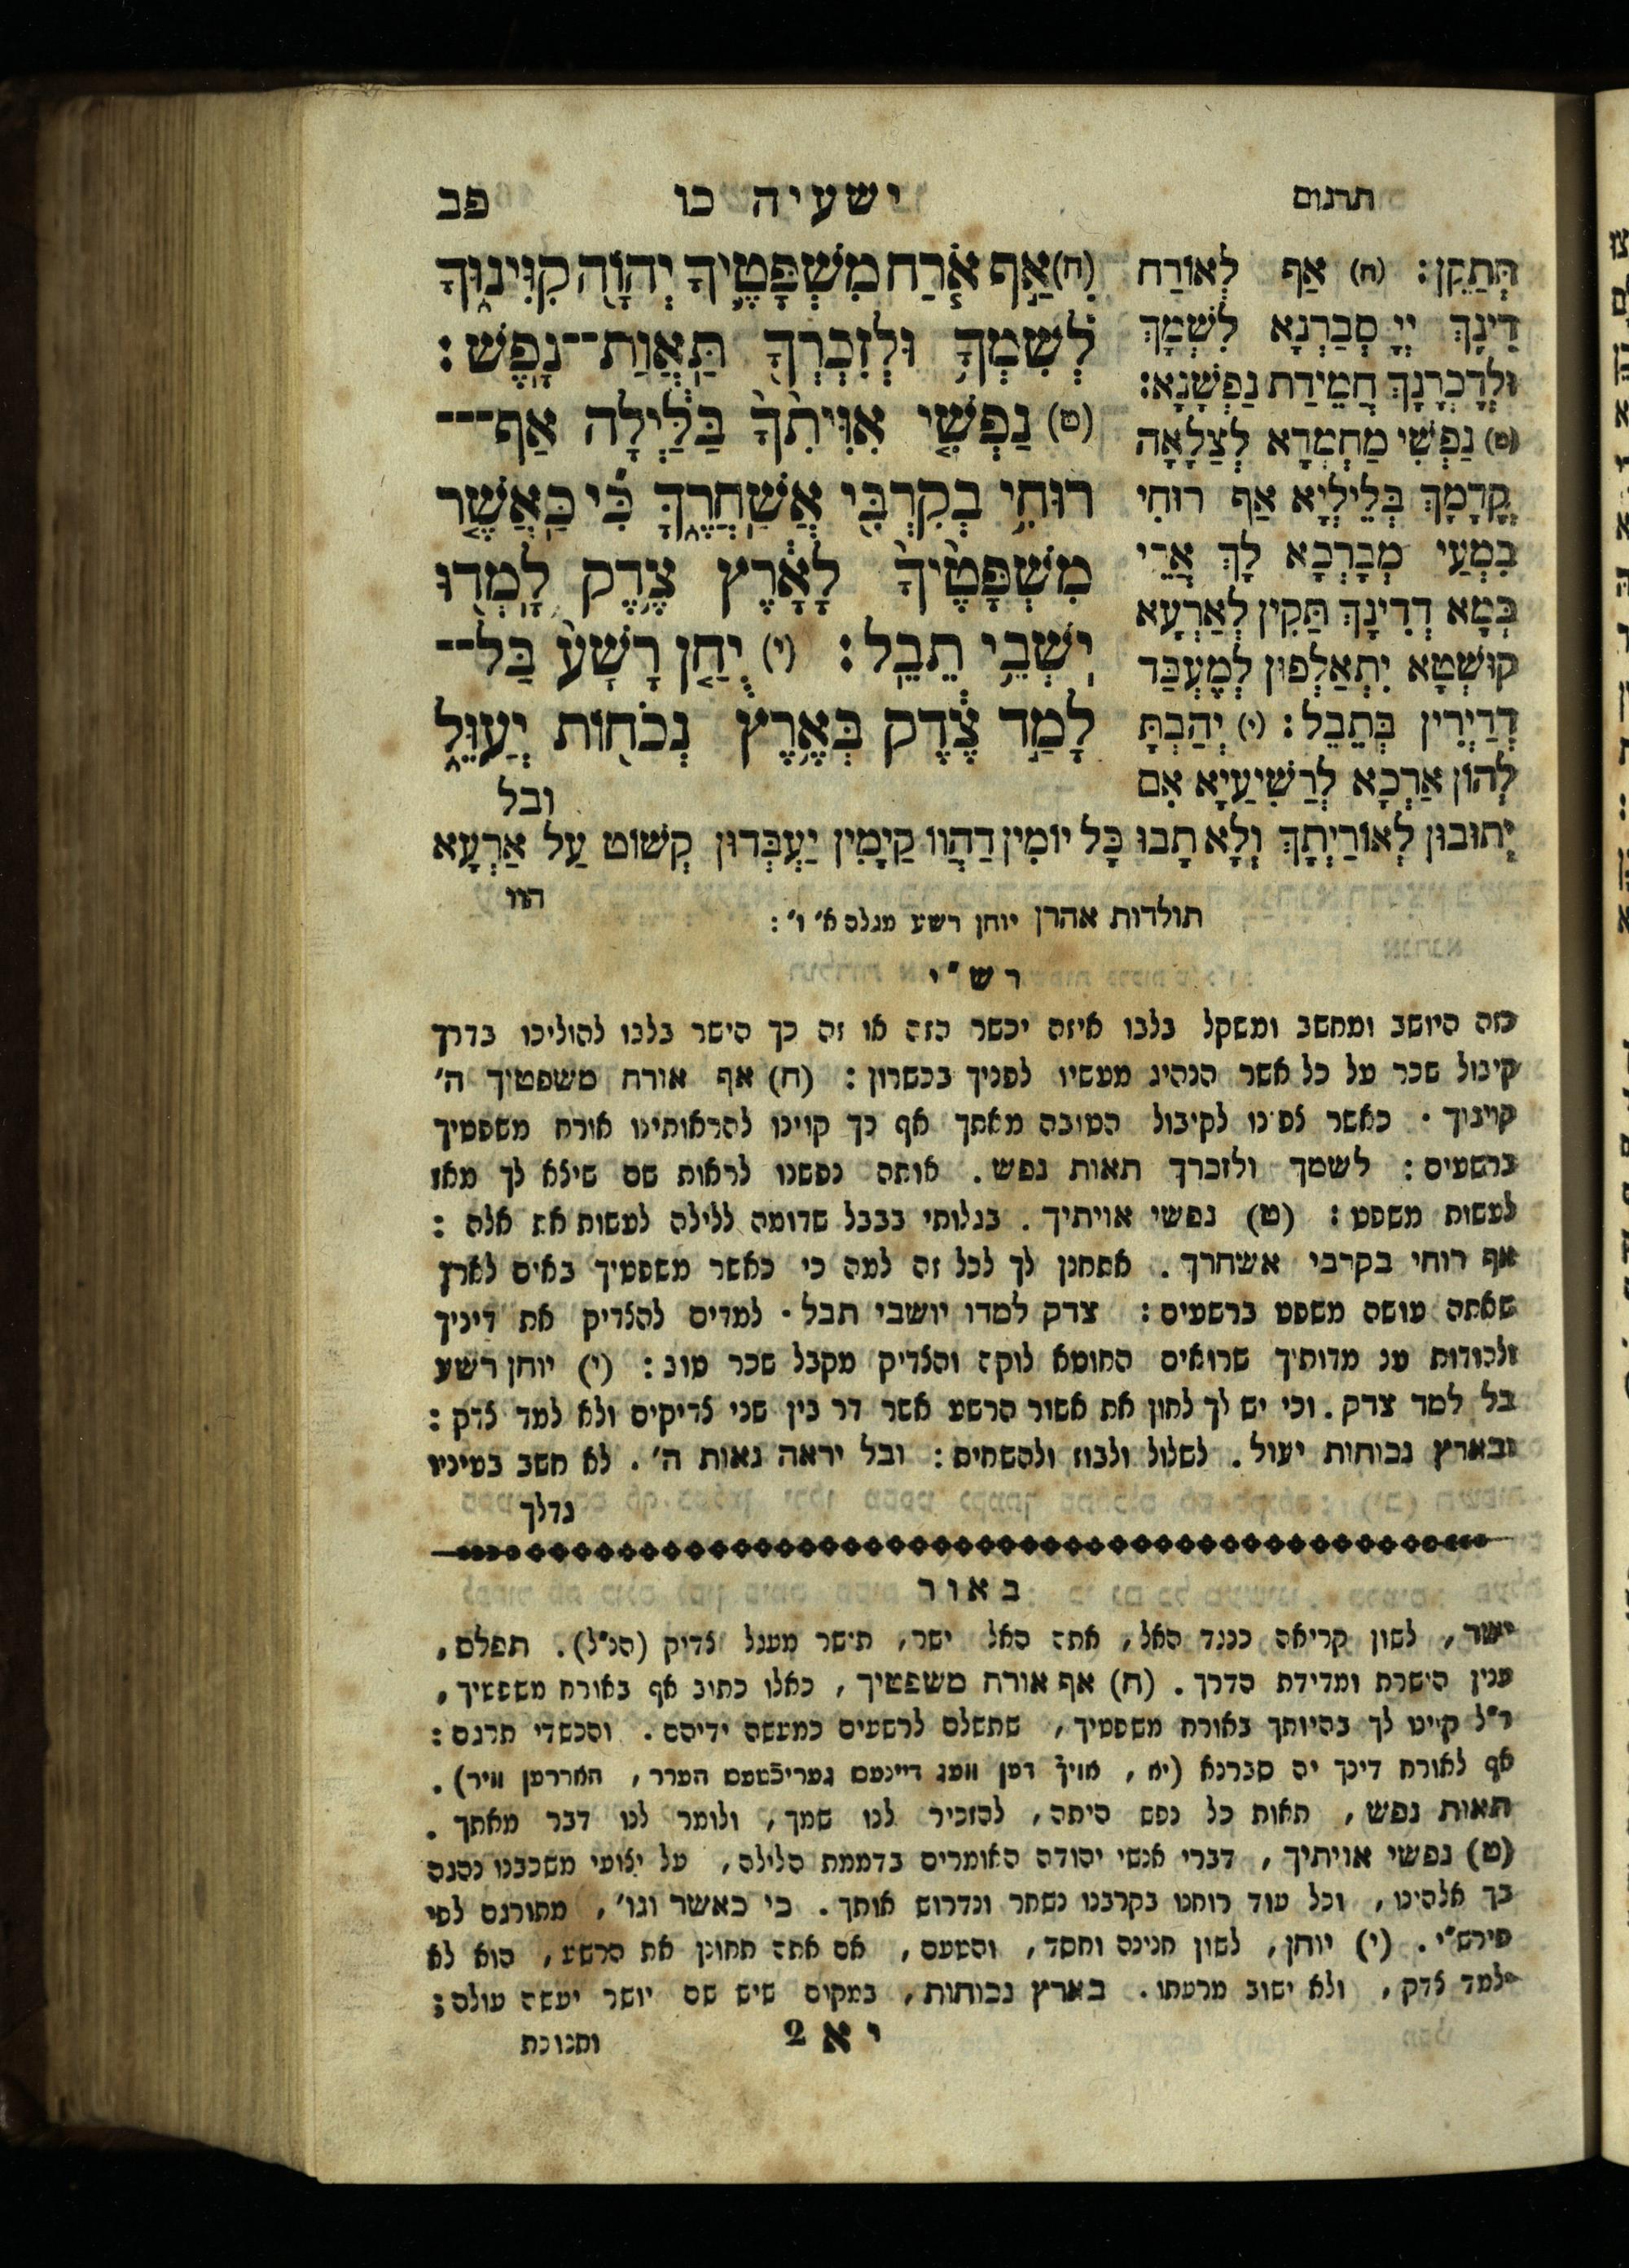 תרגום
ישעיה כו
פב
(ח) אַף אֹרַח מִשְׁפָּטֶיךָ יְהוָֹה קִוִּינוּךָ
לְשִׁמְךָ וּלְזִכְרְךָ תַּאֲוַת־־נָפֶשׁ:
(ט) נַפְשִׁי אִוִּיתִךָ בַּלַּיְלָה אַף־־־
רוּחִי בְקִרְבִּי אֲשַׁחֲרֶךָּ כִּי כַּאֲשֶׁר
מִשְׁפָּטֶיךָ לָאָרֶץ צֶדֶק לָמְדוּ
יֹשְׁבֵי תֵבֵל: (י) יֻחַן רָשָׁע בַּל־־
לָמַד צֶדֶק בְּאֶרֶץ נְכֹחוֹת יְעַוֵּל
ובל
הְּתַקֵן: (ח) אַף לְאוֹרַח
דִינָךְ יְיָ סְבַרְנָא לִשְׁמָךְ
וּלְדָכְרָנָךְ חֲמֵידַת נַפְשָׁנָא:
(ט) נַפְשִׁי מַחְמְדָא לְצַלָאָה
קֳדָמָךְ בְּלֵילְיָא אַף רוּחִי
בִּמְעַי מְבָרְכָא לָךְ אֲרֵי
כְּמָא דְדִינָךְ תַּקִין לְאַרְעָא
קוּשְׁטָא יִתְאַלְפוּן לְמֶעְבַּד
דְדַיְרִין בְּתֵבֵל: (י) יְהַבְתָּ
לְהוֹן אַרְכָא לְרַשִׁיעַיָא אִם
יְתוּבוּן לְאוֹרַיְתָךְ וְלָא תָבוּ כָּל יוֹמִין דַהֲווֹ קַיָמִין יַעְבְּדוּן קְשׁוֹט עַל אַרְעָא
הוו
תולדות אהרן יוחן רשע מגלס א׳ ו׳:
רש״י
כזה היושב ומחשב ומשקל בלבו איזה יכשר הזה או זה כך הישר בלבו להוליכו בדרך
קיבול שכר על כל אשר הנהיג מעשיו לפניך בכשרון: (ח) אף אורח משפטיך ה׳
קוינוך. כאשר לפינו לקיבול הטובה מאתך אף כך קוינו להראותינו אורח משפטיך
ברשעים: לשמך ולזכרך תאות נפש. אותה נפשנו לראות שם שיצא לך מאז
לעשות משפט: (ט) נפשי אויתיך. בגלותי בבבל שדומה ללילה לעשות את אלה:
אף רוחי בקרבי אשחרך. אתחנן לך לכל זה למה כי כאשר משפטיך באים לארץ
שאתה עושה משפט ברשעים: צדק למדו יושבי תבל. למדים להצדיק את דיניך
ולהודות על מדותיך שרואים החוטא לוקה והצדיק מקבל שכר טוב: (י) יוחן רשע
בל למד צדק. וכי יש לך לחון את אשור הרשע אשר דר בין שני צדיקים ולא למד צדק:
ובארץ נכוחות יעול. לשלול ולבוז ולהשחים: ובל יראה גאות ה׳. לא חשב בעיניו
גדלך
באור
ישר, לשון קריאה כנגד האל, אתה האל ישר, תישר מעגל צדיק (הנ״ל). תפלם,
ענין הישרת ומדידת הדרך. (ח) אף אורח משפטיך, כאלו כתוב אף באורח משפטיך,
ר״ל קוינו לך בהיותך באורח משפטיך, שתשלם לרשעים כמעשה ידיהם. והכשדי תרגם:
אף לאורח דינך יה סברנא (יא, אויף דען וועג דיינעס געריכטעס הערר, האררען וויר).
תאות נפש, תאות כל נפש היתה, להזכיר לנו שמך, ולומר לנו דבר מאתך.
(ט) נפשי אויתיך, דברי אנשי יהודה האומרים בדממת הלילה, על יצועי משכבנו נהגה
בך אלהינו, וכל עוד רוחנו בקרבנו נשחר ונדרוש אותך. כי כאשר וגו׳, מתורגם לפי
פירש״י. (י) יוחן, לשון חנינה וחסד, והטעם, אם אתה תחונן את הרשע, הוא לא
ילמד צדק, ולא ישוב מרעתו. בארץ נכוחות, במקום שיש שם יושר יעשה עולה;
יא 2